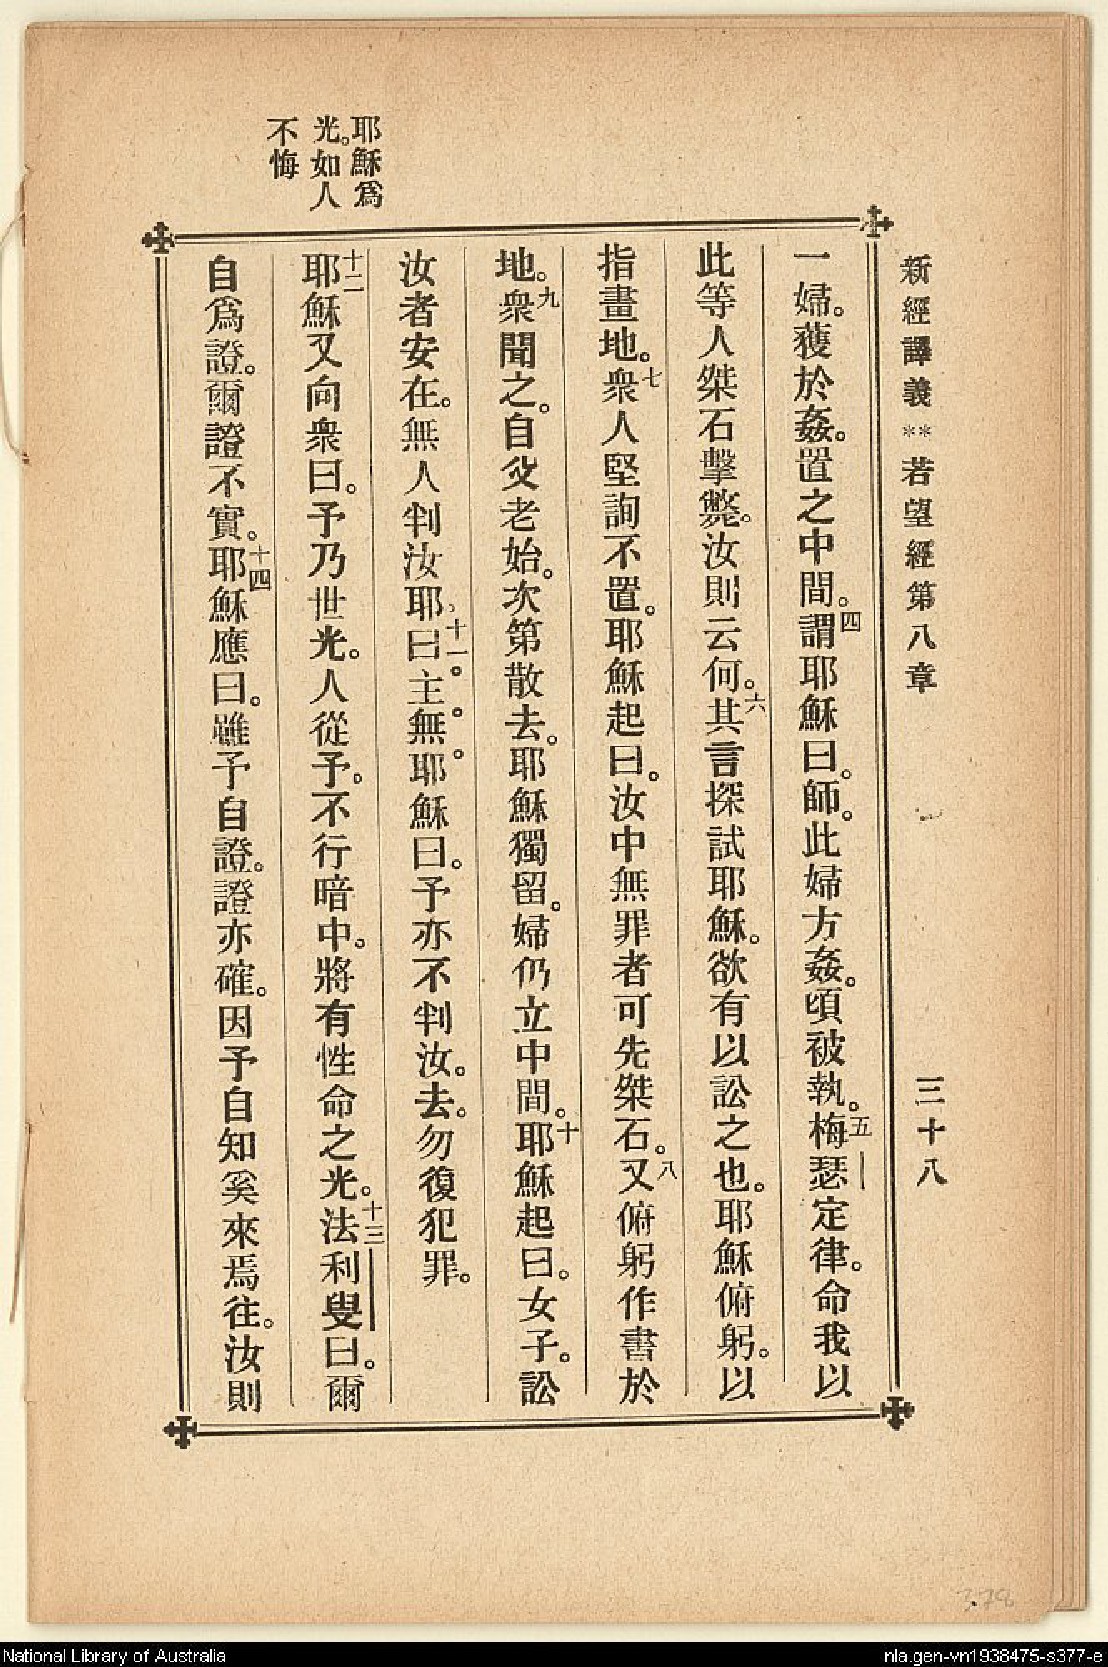 新經譯義**若望經第八章 三十八
一婦。獲於姦。置之中間。四謂耶穌曰。師。此婦方姦。頃被執。五梅瑟定律。命我以
此等人桀石擊斃。汝則云何。六其言探試耶穌。欲有以訟之也。耶穌俯躬。以
指畫地。七衆人堅詢不置。耶穌起曰。汝中無罪者可先桀石。八又俯躬作書於
地。九衆聞之。自父老始。次第散去。耶穌獨留。婦仍立中間。十耶穌起曰。女子。訟
汝者安在。無人判汝耶。十一曰。主。無。耶穌曰。予亦不判汝。去。勿復犯罪。
耶穌爲
光。如人
不悔
十二耶穌又向衆曰。予乃世光。人從予。不行暗中。將有性命之光。十三法利叟曰。爾
自爲證。爾證不實。十四耶穌應曰。雖予自證。證亦確。因予自知奚來焉往。汝則
3.78
National Library of Australia
nla.gen-vn1938475-s377-e